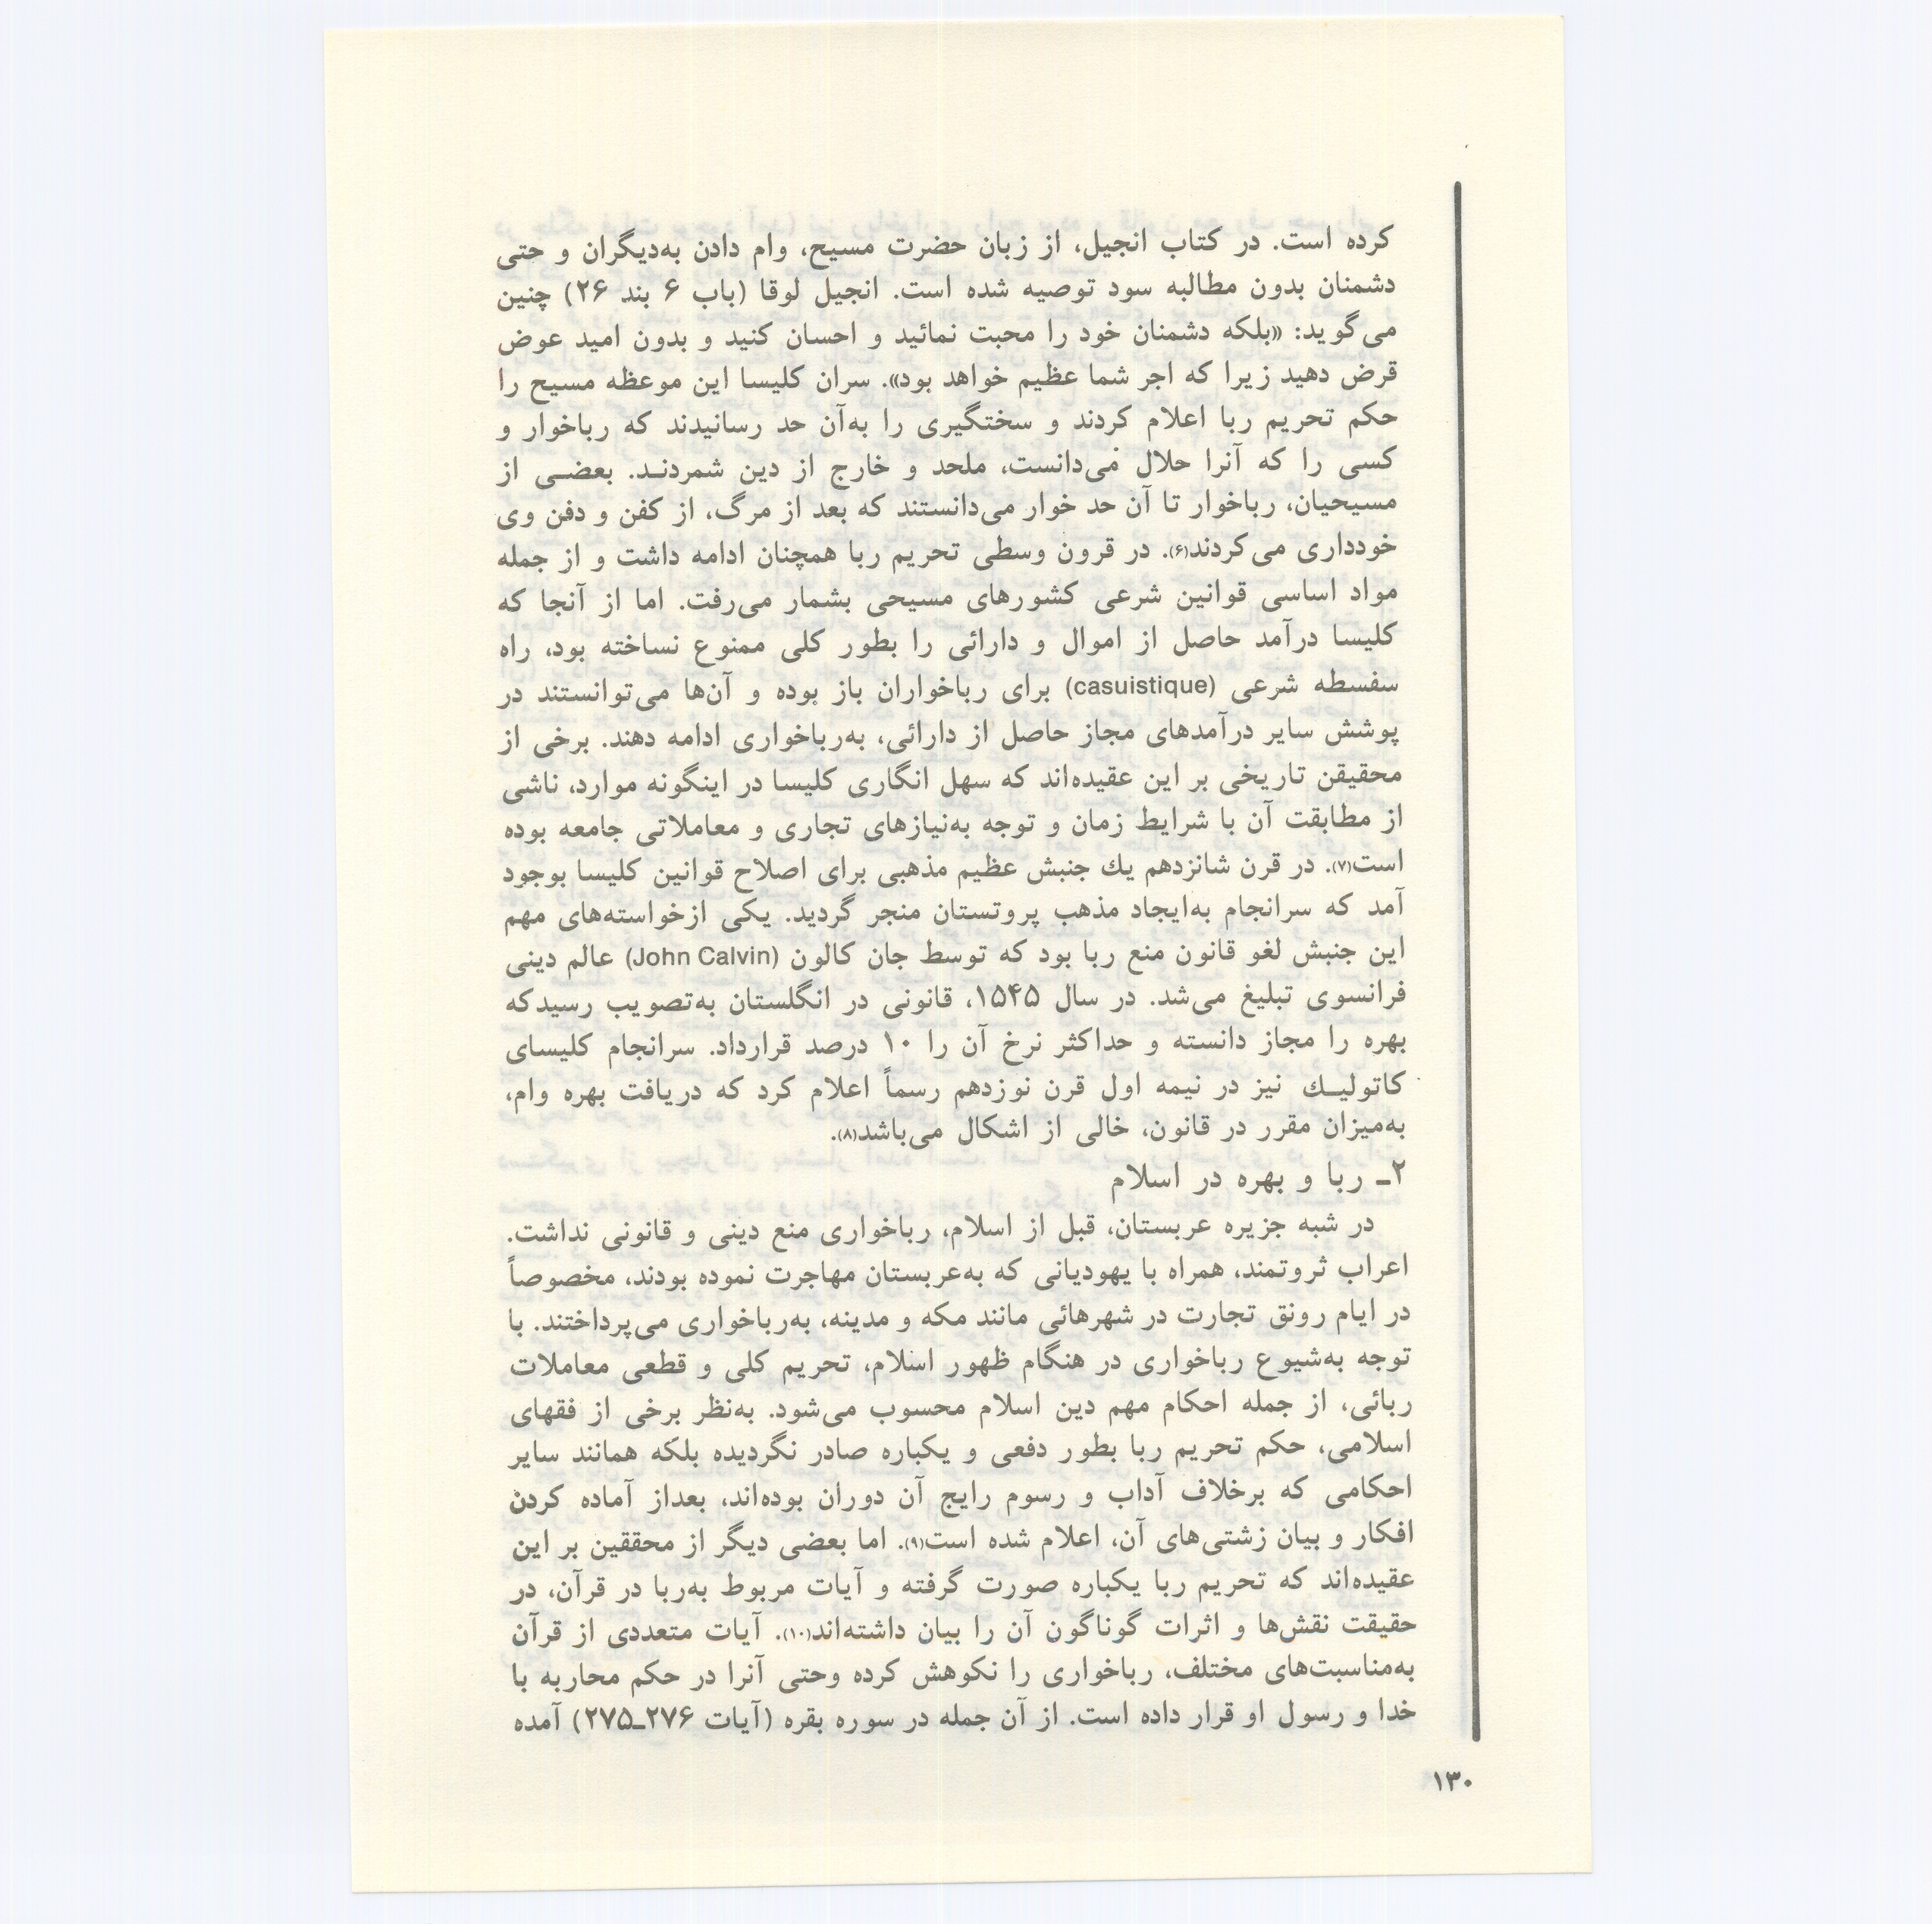 کرده است. در کتاب انجیل، از زبان حضرت مسیح، وام دادن به‌دیگران و حتی
دشمنان بدون مطالبه سود توصیه شده است. انجیل لوقا (باب ۶ بند ۲۶) چنین
می‌گوید: «بلکه دشمنان خود را محبت نمائید و احسان کنید و بدون امید عوض
قرض دهید زیرا که اجر شما عظیم خواهد بود». سران کلیسا این موعظه مسیح را
حکم تحریم ربا اعلام کردند و سختگیری را به‌آن حد رسانیدند که رباخوار و
کسی را که آنرا حلال می‌دانست، ملحد و خارج از دین شمردنـد. بعضـی از
مسیحیان، رباخوار تا آن حد خوار می‌دانستند که بعد از مرگ، از کفن و دفن وی
خودداری می‌کردند(۶). در قرون وسطی تحریم ربا همچنان ادامه داشت و از جمله
مواد اساسی قوانین شرعی کشورهای مسیحی بشمار می‌رفت. اما از آنجا که
کلیسا درآمد حاصل از اموال و دارائی را بطور کلی ممنوع نساخته بود، راه
سفسطه شرعی (casuistique) برای رباخواران باز بوده و آن‌ها می‌توانستند در
پوشش سایر درآمدهای مجاز حاصل از دارائی، به‌رباخواری ادامه دهند. برخی از
محقیقن تاریخی بر این عقیده‌اند که سهل انگاری کلیسا در اینگونه موارد، ناشی
از مطابقت آن با شرایط زمان و توجه به‌نیازهای تجاری و معاملاتی جامعه بوده
است(۷). در قرن شانزدهم یك جنبش عظیم مذهبی برای اصلاح قوانین کلیسا بوجود
آمد که سرانجام به‌ایجاد مذهب پروتستان منجر گردید. یکی ازخواسته‌های مهم
این جنبش لغو قانون منع ربا بود که توسط جان کالون (John Calvin) عالم دینی
فرانسوی تبلیغ می‌شد. در سال ۱۵۴۵، قانونی در انگلستان به‌تصویب رسیدکه
بهره را مجاز دانسته و حداکثر نرخ آن را ۱۰ درصد قرارداد. سرانجام کلیسای
کاتولیـك نیز در نیمه اول قرن نوزدهم رسماً اعلام کرد که دریافت بهره وام،
به‌میزان مقرر در قانون، خالی از اشکال می‌باشد(۸).
۲ـ ربا و بهره در اسلام
در شبه جزیره عربستان، قبل از اسلام، رباخواری منع دینی و قانونی نداشت.
اعراب ثروتمند، همراه با یهودیانی که به‌عربستان مهاجرت نموده بودند، مخصوصاً
در ایام رونق تجارت در شهرهائی مانند مکه و مدینه، به‌رباخواری می‌پرداختند. با
توجه به‌شیوع رباخواری در هنگام ظهور اسلام، تحریم کلی و قطعی معاملات
ربائی، از جمله احکام مهم دین اسلام محسوب می‌شود. به‌نظر برخی از فقهای
اسلامی، حکم تحریم ربا بطور دفعی و یکباره صادر نگردیده بلکه همانند سایر
احکامی که برخلاف آداب و رسوم رایج آن دوران بوده‌اند، بعداز آماده کردن
افکار و بیان زشتی‌های آن، اعلام شده است(۹). اما بعضی دیگر از محققین بر این
عقیده‌اند که تحریم ربا یکباره صورت گرفته و آیات مربوط به‌ربا در قرآن، در
حقیقت نقش‌ها و اثرات گوناگون آن را بیان داشته‌اند(۱۰). آیات متعددی از قرآن
به‌مناسبت‌های مختلف، رباخواری را نکوهش کرده وحتی آنرا در حکم محاربه با
خدا و رسول او قرار داده است. از آن جمله در سوره بقره (آیات ۲۷۶ـ۲۷۵) آمده
۱۳۰